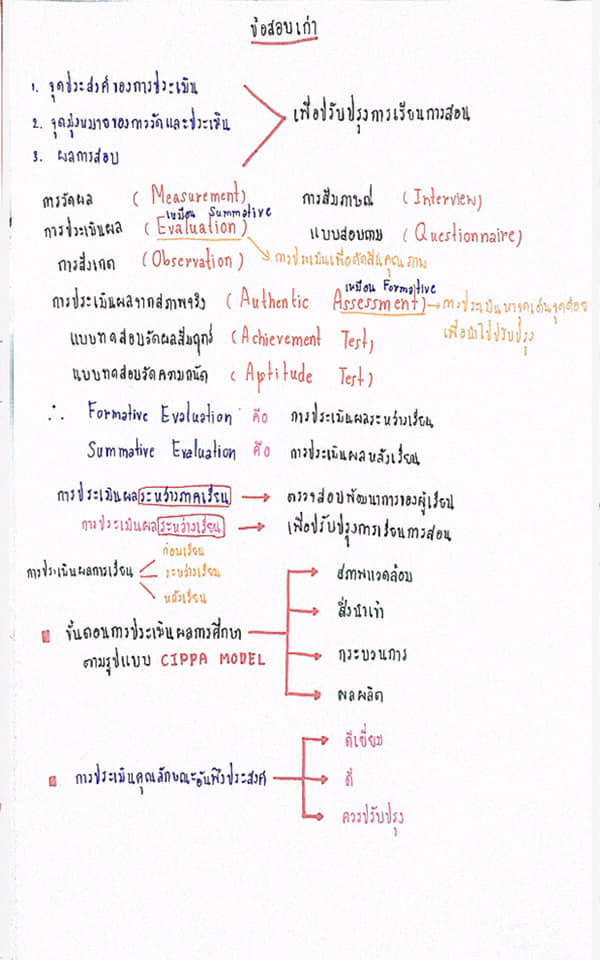 ข้อสอบเก่า
1. จุดประสงค์ของการประเมิน
2. จุดมุ่งหมายของการวัดและประเมิน
3. ผลการสอบ
เพื่อปรับปรุงการเรียนการสอน
การวัดผล (Measurement) การสัมภาษณ์ (Interview)
เหมือน Summative
การประเมินผล (Evaluation) แบบสอบถาม (Questionnaire)
การสังเกต (Observation) การประเมินเพื่อตัดสินคุณภาพ
เหมือน Formative
การประเมินผลจากสภาพจริง (Authentic Assessment) การประเมินหาจุดเด่นจุดด้อย
เพื่อนำไปปรับปรุง
แบบทดสอบวัดผลสัมฤทธิ์ (Achievement Test)
แบบทดสอบวัดความถนัด (Aptitude Test)
∴ Formative Evaluation คือ การประเมินผลระหว่างเรียน
Summative Evaluation คือ การประเมินผลหลังเรียน
การประเมินผลระหว่างภาคเรียน → ตรวจสอบพัฒนาการของผู้เรียน
การประเมินผลระหว่างเรียน → เพื่อปรับปรุงการเรียนการสอน
การประเมินผลการเรียน
ก่อนเรียน
ระหว่างเรียน
หลังเรียน
ขั้นตอนการประเมินผลการศึกษา
ตามรูปแบบ CIPPA MODEL
สภาพแวดล้อม
สิ่งนำเข้า
กระบวนการ
ผลผลิต
การประเมินคุณลักษณะอันพึงประสงค์
ดีเยี่ยม
ดี
ควรปรับปรุง